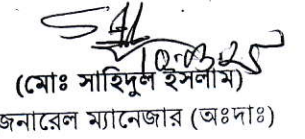 10.03.25
(মোঃ সাহিদুল ইসলাম)
জেনারেল ম্যানেজার (অঃদাঃ)